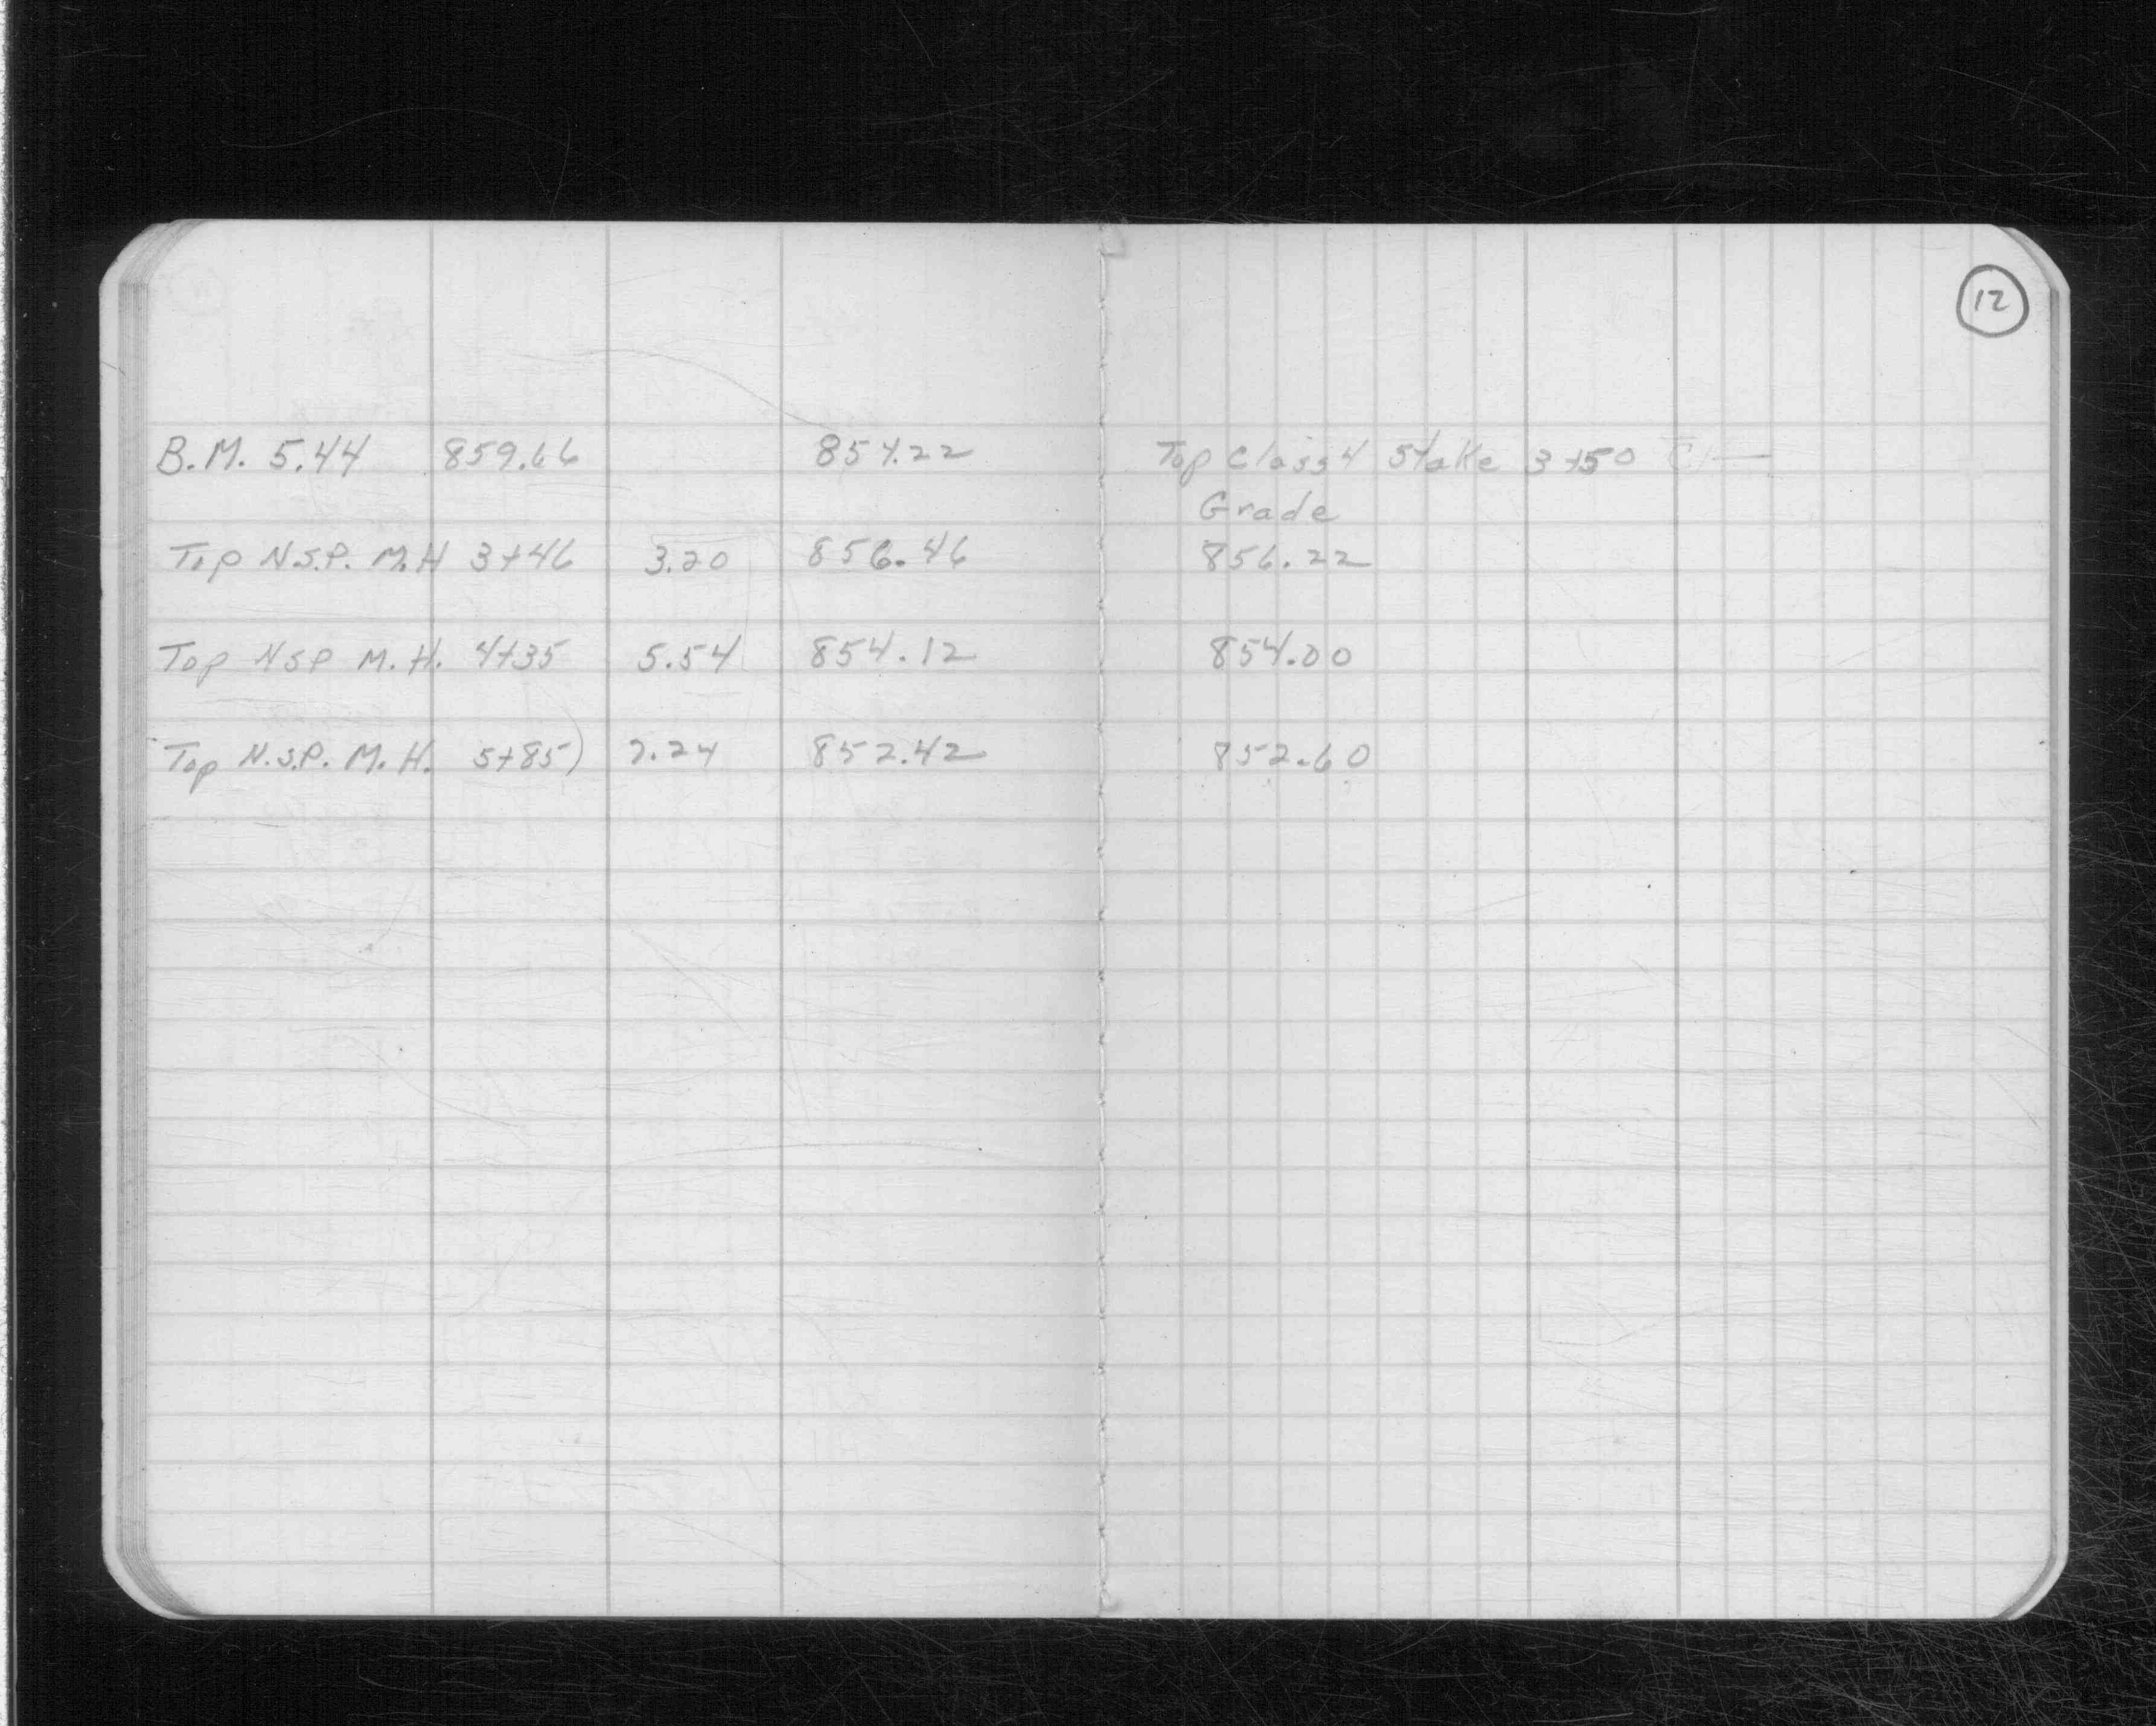 12
B.M. 5.44 859.66 854.22 Top Class 4 Stake 3+50
Grade
Top N.S.P. M.H 3+46 3.20 856.46 856.22
Top NSP M.H. 4+35 5.54 854.12 854.00
Top N.S.P. M.H. 5+85) 7.24 852.42 852.60